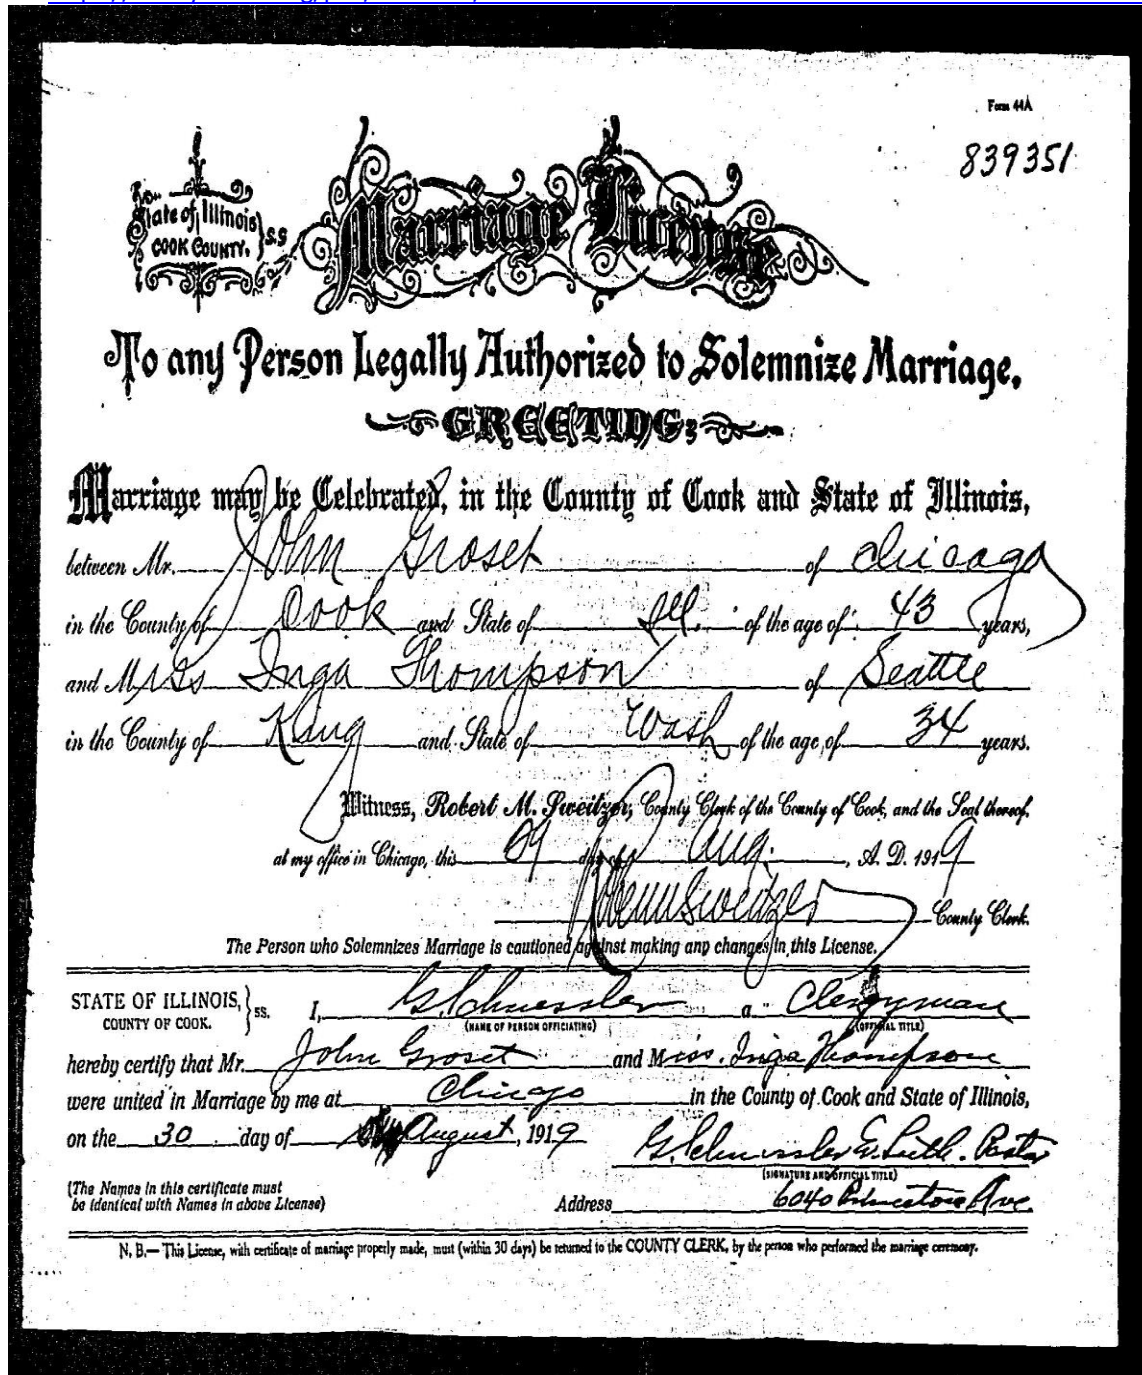 Form 44A
839351
State of Illinois
COOK COUNTY. } S.S
Marriage License
To any Person Legally Authorized to Solemnize Marriage,
GREETING:
Marriage may be Celebrated, in the County of Cook and State of Illinois,
between Mr. John Groset of Chicago
in the County of Cook and State of Ill. of the age of 43 years,
and Miss Inga Thompson of Seattle
in the County of King and State of Wash of the age of 34 years.
Witness, Robert M. Sweitzer, County Clerk of the County of Cook, and the Seal thereof,
at my office in Chicago, this 29 day of Aug. , A. D. 1919
Robert M Sweitzer County Clerk.
The Person who Solemnizes Marriage is cautioned against making any changes in this License.
STATE OF ILLINOIS, } ss. I, G. Schuessler a Clergyman
COUNTY OF COOK. (NAME OF PERSON OFFICIATING) (OFFICIAL TITLE)
hereby certify that Mr. John Groset and Miss. Inga Thompson
were united in Marriage by me at Chicago in the County of Cook and State of Illinois,
on the 30 day of August, 1919
G. Schuessler E. Luth. Pastor
(SIGNATURE AND OFFICIAL TITLE)
(The Names in this certificate must
be identical with Names in above License)
Address 6040 Princeton Ave.
N. B.— This License, with certificate of marriage properly made, must (within 30 days) be returned to the COUNTY CLERK, by the person who performed the marriage ceremony.